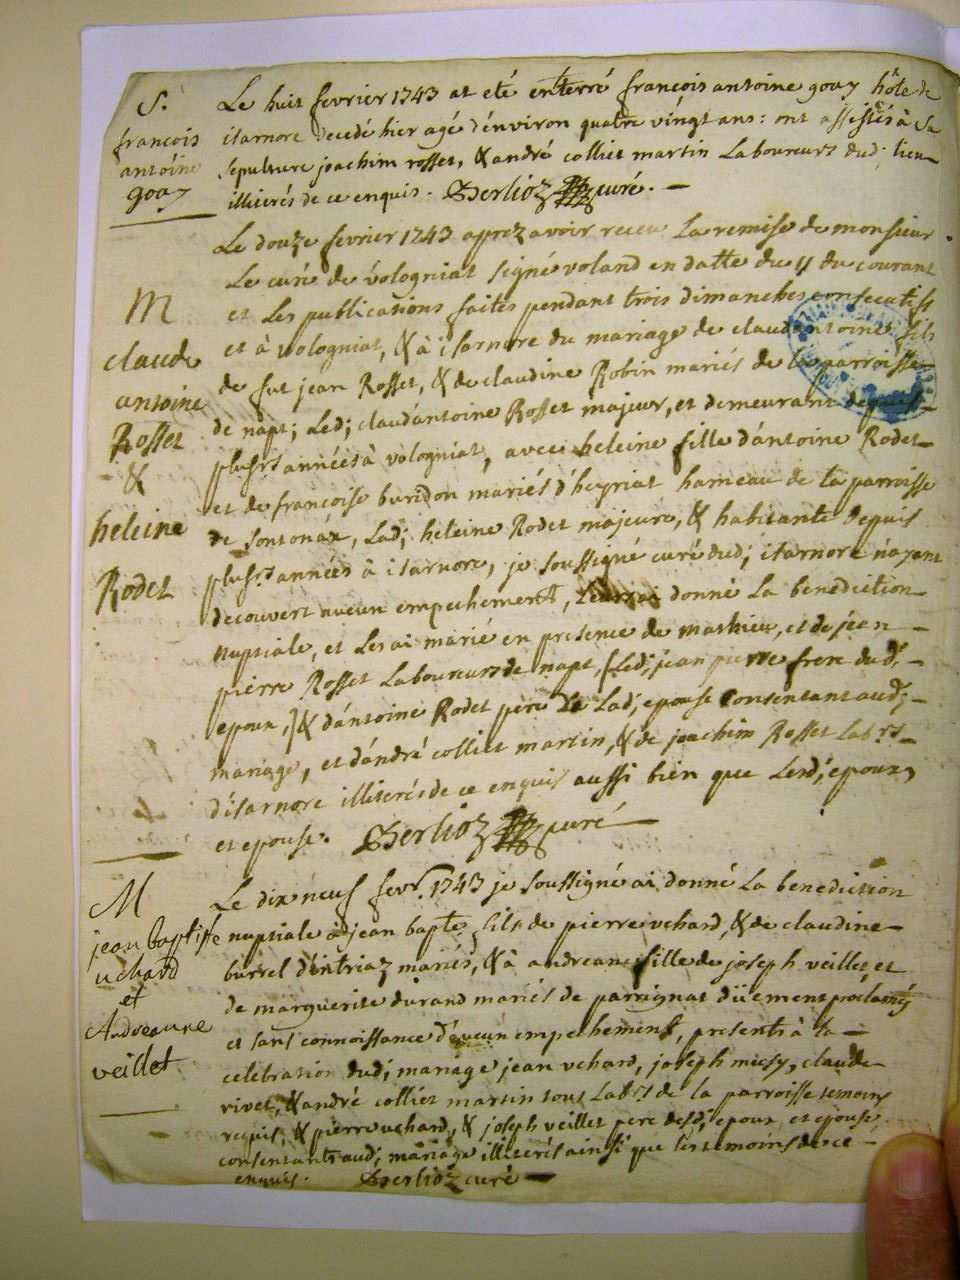 S.
françois
antoine
gouy
Le huit fevrier 1743 at eté enterré françois antoine gouy hôte de
isarnore decedé hier agé d'environ quatre vingt ans: ont assistés à sa
sepulture joachim rosset, & andré colliet martin Laboureurs dud. lieu
illiterés de ce enquis. Berlioz curé.
M
claude
antoine
Rosset
&
heleine
Rodet
Le douze fevrier 1743 aprez avoir receu La remise de monsieur
Le curé de vologniat signé voland en datte du 11 du courant
et Les publications faites pendant trois dimanches consecutifs
et à vologniat, & à isarnore du mariage de claud antoine fils
de fut jean Rosset, & de claudine Robin mariés de la parroisse
de napt; Led; claud'antoine Rosset majeur, et demeurant depuis
plusrs années à vologniat, avec heleine fille d'antoine Rodet
et de francoise buridon mariés d'heyriat hameau de la parroisse
de sontonax, Lad; heleine Rodet majeure, & habitante depuis
plusrs années à isarnore, je soussigné curé dud; isarnore n'ayant
decouvert aucun empechement, Leur ai donné La benediction
nuptiale, et Les ai marié en presence de mathieu, et de jean
pierre Rosset Laboureurs de napt, [Led; jean pierre frere dud;
epoux,] & d'antoine Rodet pere de Lad; epouse consentant aud;
mariage, et d'andré colliet martin, & de joachim Rosset Labrs
d'isarnore illiterés de ce enquis aussi bien que Lesd; epoux,
et epouse. Berlioz curé
M
jean baptiste
uchard
et
Andreanne
veillet
Le dix neuf fevr. 1743 je soussigné ai donné La benediction
nuptiale à jean bapte fils de pierre uchard, & de claudine
burrel d'intriaz mariés, & à andreane fille de joseph veillet, et
de marguerite durand mariés de parrignat düement proclamés
et sans connoissance d'aucun empechement, presents à la
celebration dud; mariage jean uchard, joseph , claude
rivet, & andré colliet martin tous Labrs de la parroisse temoins
requis, & pierre uchard, & joseph veillet pere desd; epoux et epouse
consentants aud; mariage illiterés ainsi que les temoins de ce
enquis. Berlioz curé